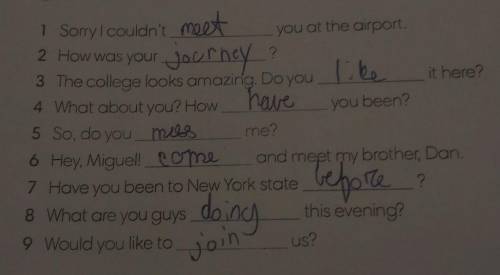 1 Sorry I couldn't meet you at the airport.
2 How was your journey ?
3 The college looks amazing. Do you like it here?
4 What about you? How have you been?
5 So, do you miss me?
6 Hey, Miguel! come and meet my brother, Dan.
7 Have you been to New York state before ?
8 What are you guys doing this evening?
9 Would you like to join us?